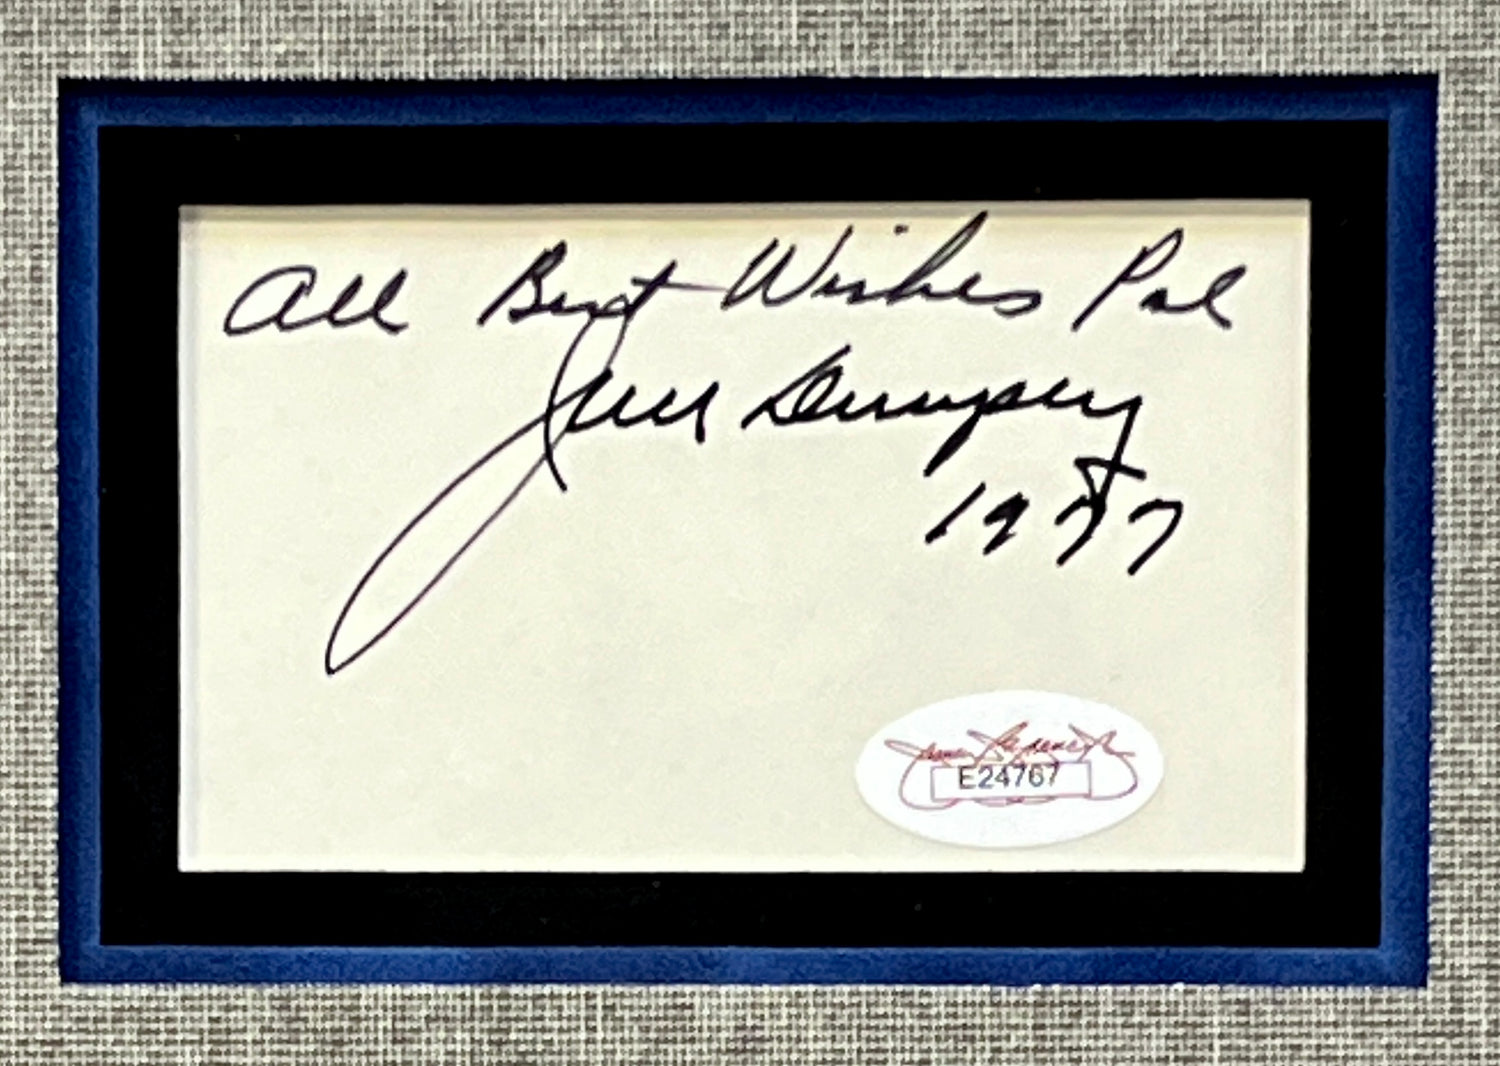 All Best Wishes Pal
Jack Dempsey
1977
James Spence Jr
E24767